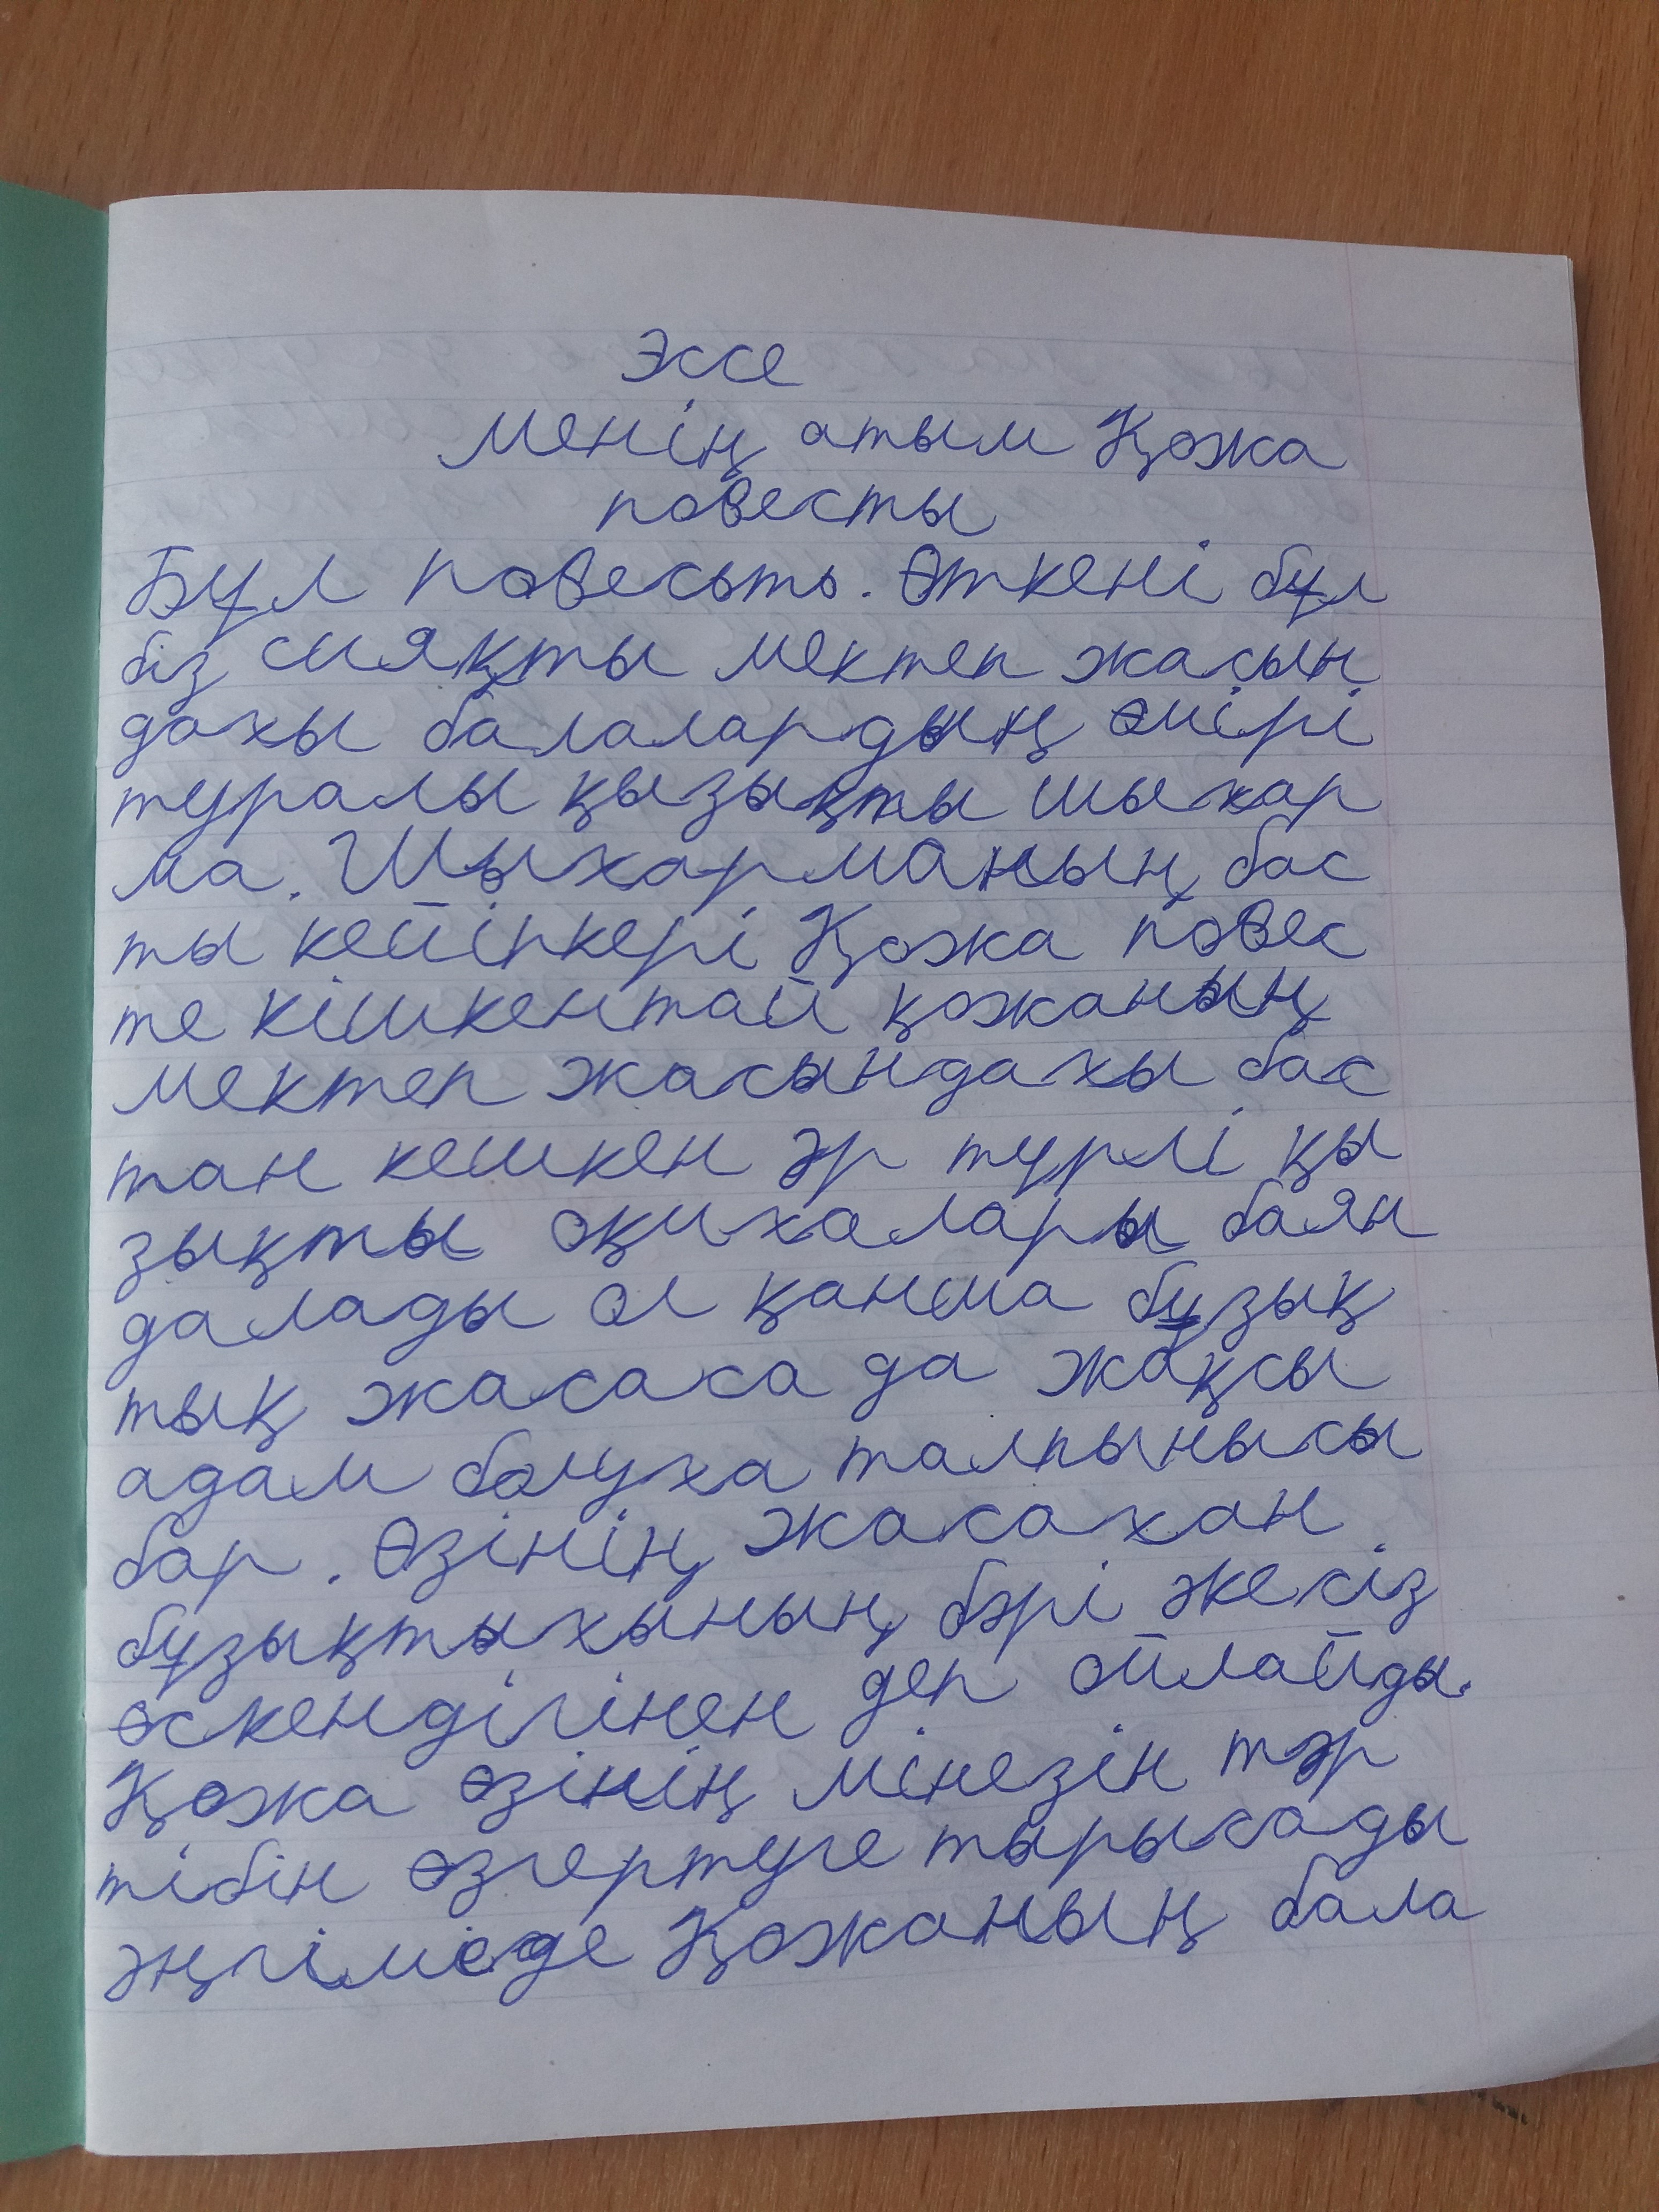 Эссе
Менің атым Қожа
повесты
Бұл повесьть. Өткені бұл
біз сияқты мектеп жасын
дахы балалардың өмірі
туралы қызықты шыхар
ма. Шыхарманың бас
ты кейіпкері Қожа повес
те кішкентай қожаның
мектеп жасындахы бас
тан кешкен әр түрлі қы
зықты оқихалары баян
далады ол қанша бұзық
тық жасаса да жақсы
адам болуха талпынысы
бар. Өзінің жасахан
бұзықтыхының бәрі әкесіз
өскендігінен деп ойлайды.
Қожа өзінің мінезін тәр
тібін өзгертуге тырысады
әңгімеде Қожаның бала